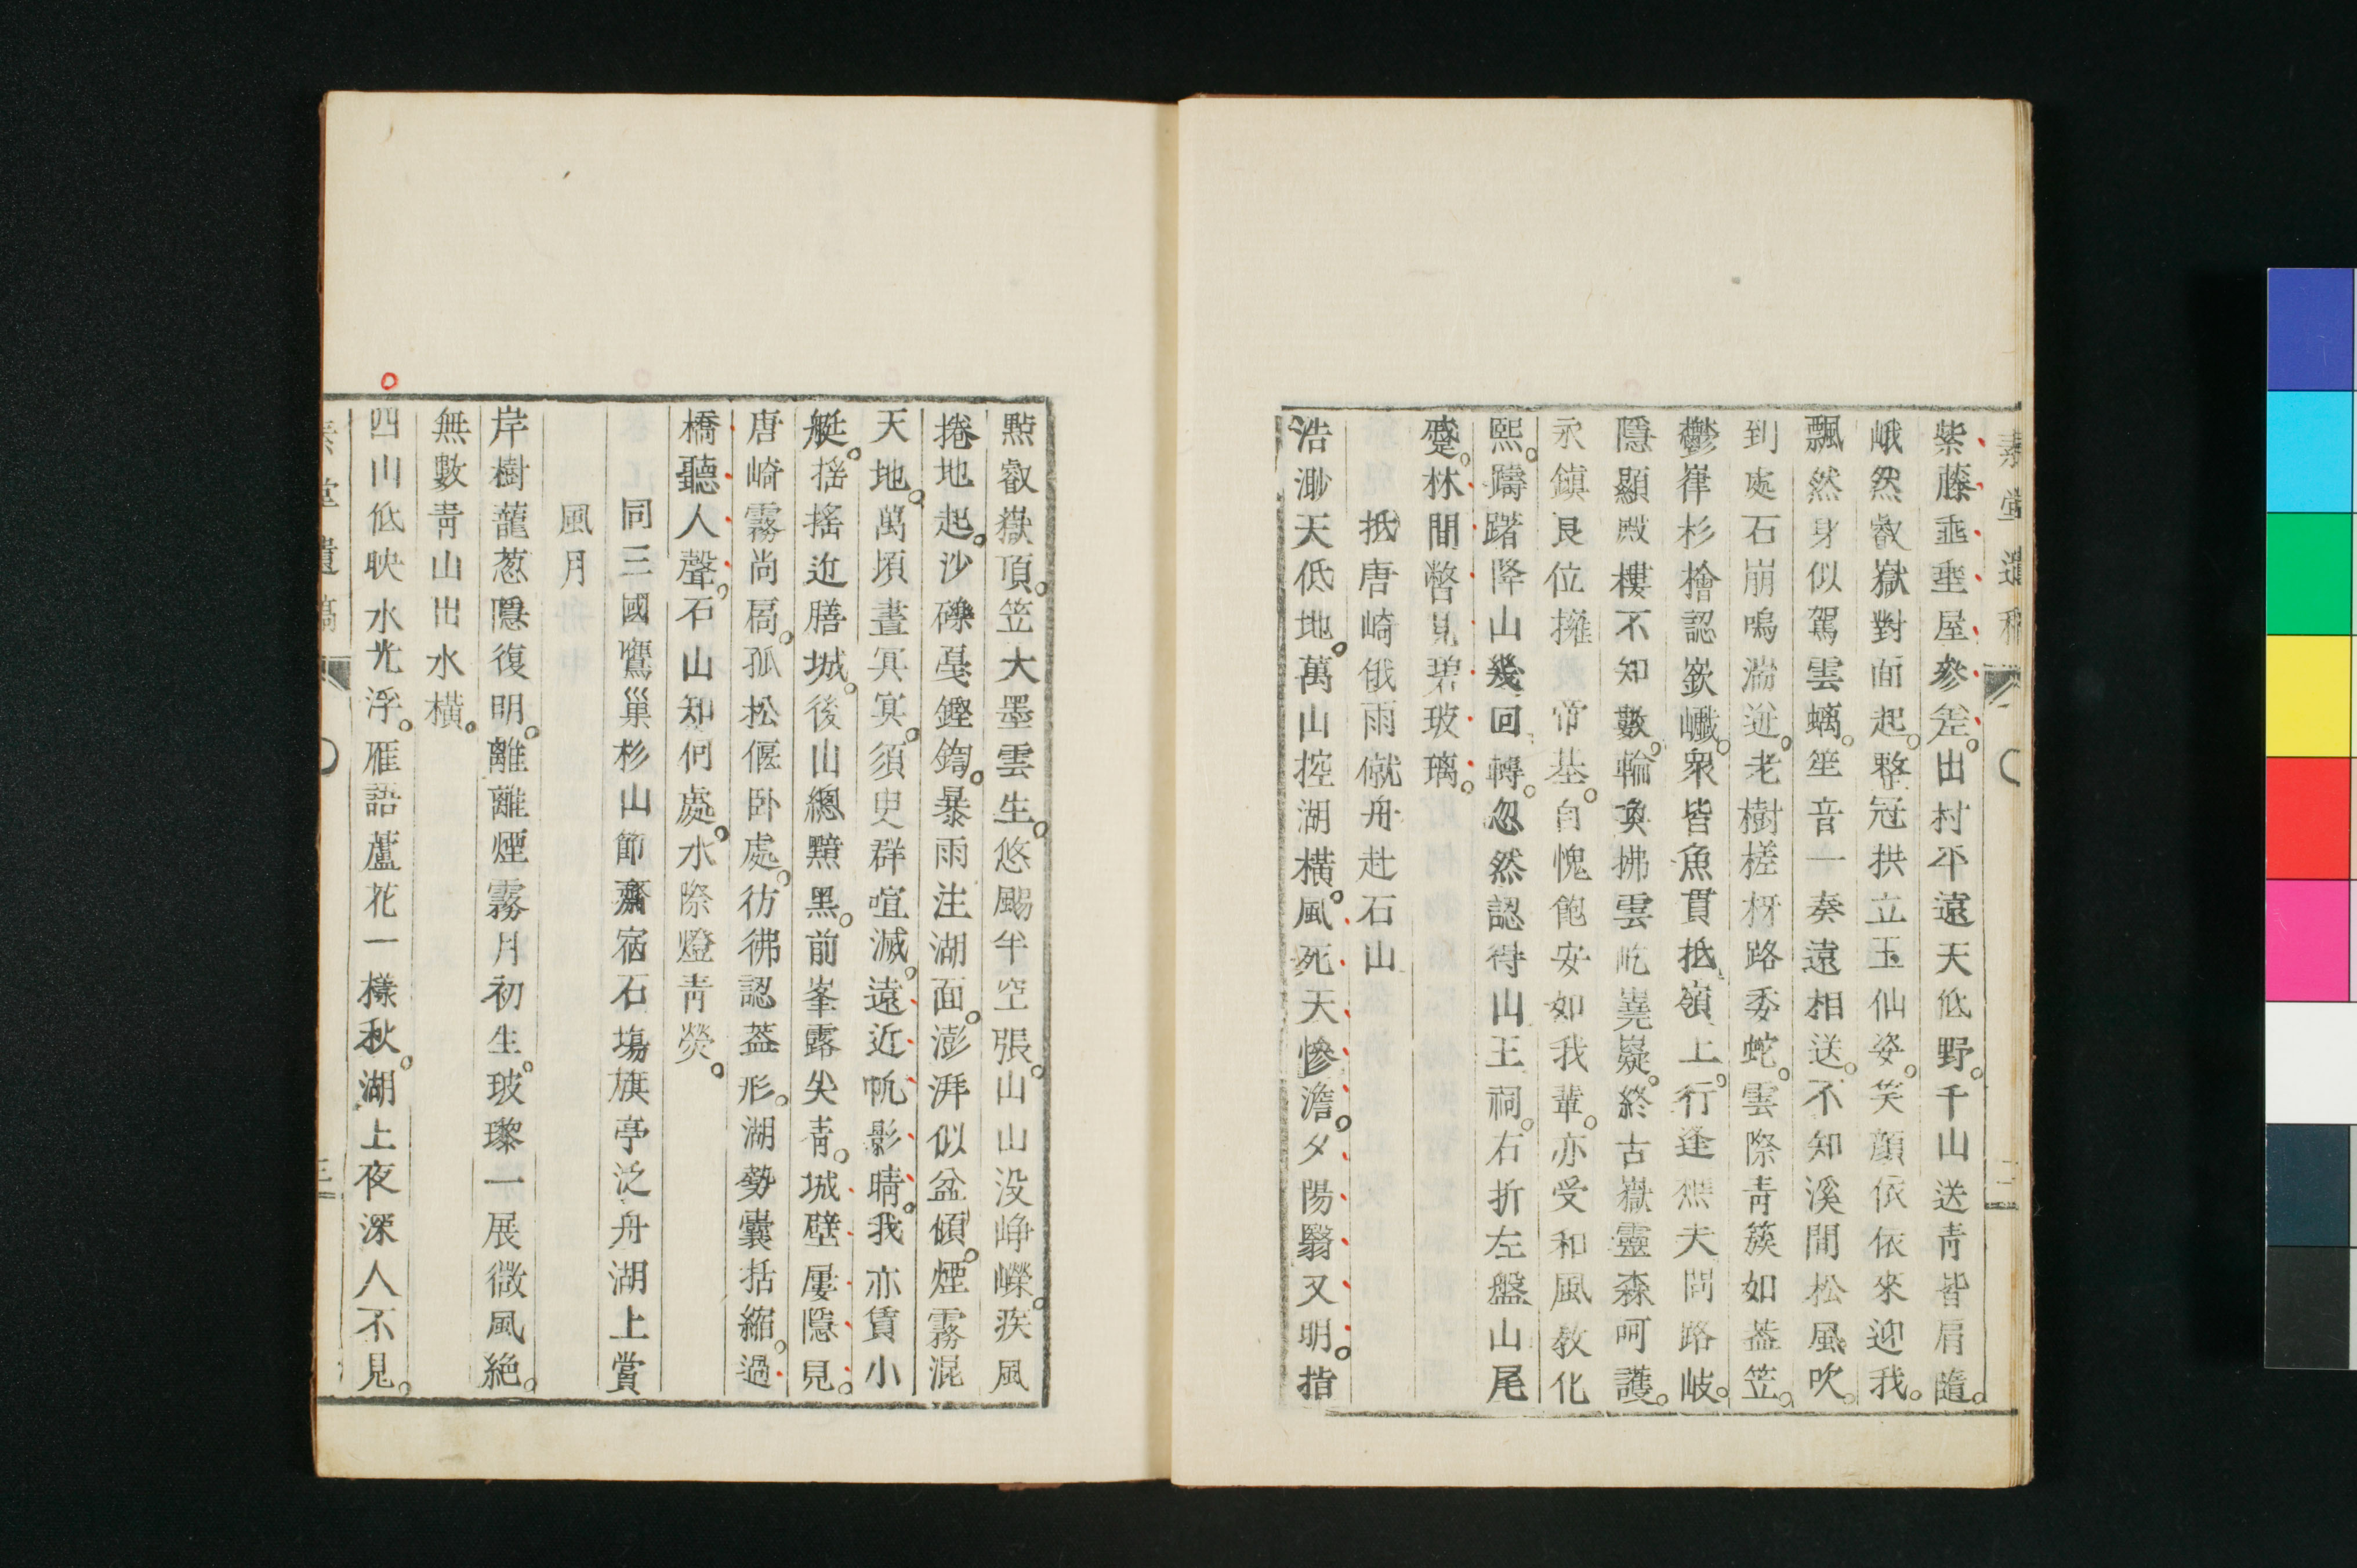 素堂遺稿
二
紫藤垂垂屋參差。出村平遠天低野。千山送青皆肩隨。
峨然叡嶽對面起。整冠拱立玉仙姿。笑顏依依來迎我。
飄然身似駕雲螭。笙音一奏遠相送。不知溪間松風吹。
到處石崩鳴湍逆。老樹槎枒路委蛇。雲際青簇如葢笠。
鬱葎杉檜認嶔巇。衆皆魚貫抵嶺上。行逢樵夫問路岐。
隱顯殿樓不知數。輪奐拂雲屹嶤嶷。終古嶽靈森呵護。
永鎮艮位擁帝基。自愧飽安如我輩。亦受和風教化
熙。躊躇降山幾回轉。忽然認得山王祠。右折左盤山尾
蹙。林間瞥見碧玻璃。
抵唐崎俄雨僦舟赴石山
浩渺天低地。萬山控湖橫。風死天慘澹。夕陽翳又明。指
點叡嶽頂。笠大墨雲生。悠颺半空張。山山没崢嶸。疾風
捲地起。沙礫戞鏗鍧。暴雨注湖面。澎湃似盆傾。煙霧混
天地。萬頃晝冥冥。須臾群喧滅。遠近帆影晴。我亦賃小
艇。搖搖近膳城。後山總黯黑。前峯露尖青。城壁屢隱見。
唐崎霧尚扃。孤松偃卧處。彷彿認葢形。湖勢囊括縮。過
橋聽人聲。石山知何處。水際燈青熒。
同三國鷹巢杉山節齋宿石塲旗亭泛舟湖上賞
風月
岸樹蘢葱隱復明。離離煙霧月初生。玻瓈一展微風絶。
無數青山出水橫。
四山低映水光浮。雁語蘆花一樣秋。湖上夜深人不見。
素堂遺稿
三